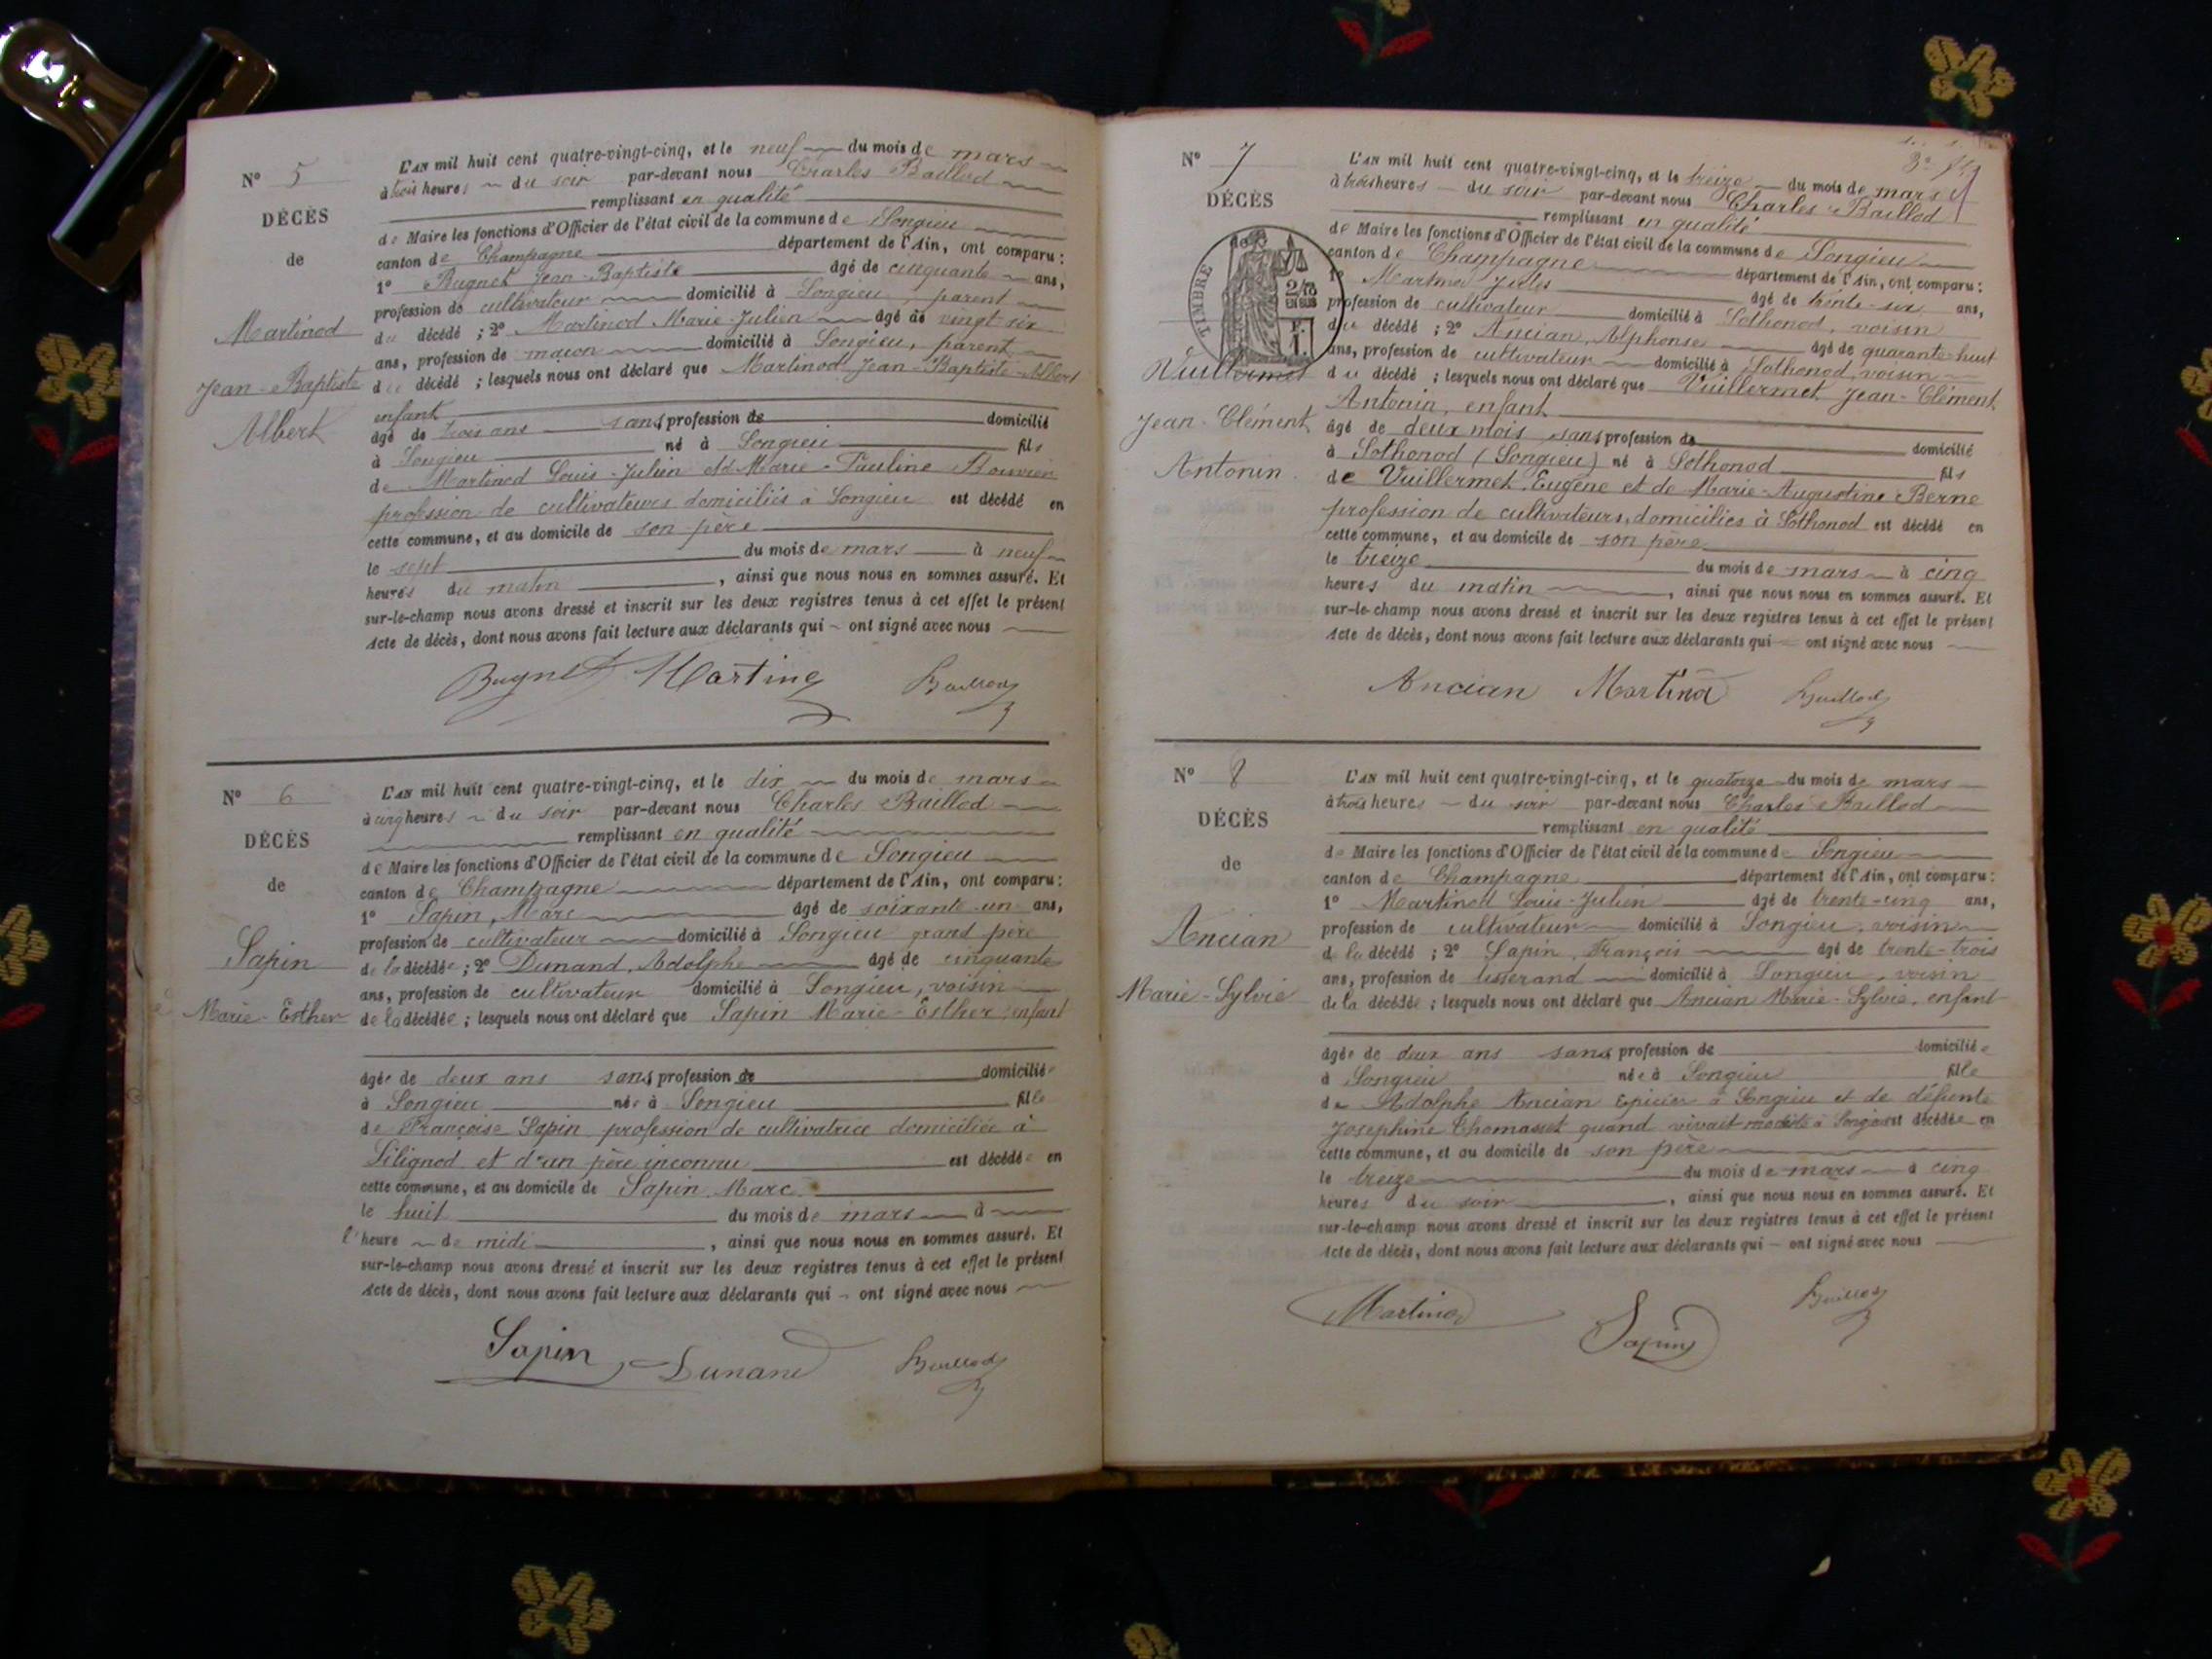 N° 5
DÉCÈS
de
Martinod
Jean-Baptiste
Albert
L'AN mil huit cent quatre-vingt-cinq, et le neuf du mois de mars
à trois heures du soir par-devant nous Charles Baillod
remplissant en qualité
de Maire les fonctions d'Officier de l'état civil de la commune de Songieu
canton de Champagne département de l'Ain, ont comparu :
1° Bugnet Jean-Baptiste âgé de cinquante ans,
profession de cultivateur domicilié à Songieu, parent
du décédé ; 2° Martinod Marie-Julien âgé de vingt six
ans, profession de maçon domicilié à Songieu, parent
du décédé ; lesquels nous ont déclaré que Martinod Jean-Baptiste-Albert
enfant
âgé de trois ans sans profession de domicilié
à Songieu né à Songieu fils
de Martinod Louis-Julien et Marie-Pauline Bouvier
profession de cultivateurs domiciliés à Songieu est décédé en
cette commune, et au domicile de son père
le sept du mois de mars à neuf
heures du matin , ainsi que nous nous en sommes assuré. Et
sur-le-champ nous avons dressé et inscrit sur les deux registres tenus à cet effet le présent
Acte de décès, dont nous avons fait lecture aux déclarants qui ont signé avec nous
Bugnet Martinod Baillod
N° 6
DÉCÈS
de
Sapin
Marie-Esther
L'AN mil huit cent quatre-vingt-cinq, et le dix du mois de mars
à cinq heures du soir par-devant nous Charles Baillod
remplissant en qualité
de Maire les fonctions d'Officier de l'état civil de la commune de Songieu
canton de Champagne département de l'Ain, ont comparu :
1° Sapin, Marc âgé de soixante-un ans,
profession de cultivateur domicilié à Songieu grand père
de la décédée ; 2° Dunand, Adolphe âgé de cinquante
ans, profession de cultivateur domicilié à Songieu, voisin
de la décédée ; lesquels nous ont déclaré que Sapin Marie-Esther, enfant
âgée de deux ans sans profession de domiciliée
à Songieu née à Songieu fille
de Françoise Sapin profession de cultivatrice domiciliée à
Lilignod et d'un père inconnu est décédée en
cette commune, et au domicile de Sapin Marc
le huit du mois de mars à
l'heure de midi , ainsi que nous nous en sommes assuré. Et
sur-le-champ nous avons dressé et inscrit sur les deux registres tenus à cet effet le présent
Acte de décès, dont nous avons fait lecture aux déclarants qui ont signé avec nous
Sapin Dunand Baillod
N° 7
DÉCÈS
de
TIMBRE
Vuillermet
Jean-Clément
Antonin
L'AN mil huit cent quatre-vingt-cinq, et le treize du mois de mars
à trois heures du soir par-devant nous Charles Baillod
remplissant en qualité
de Maire les fonctions d'Officier de l'état civil de la commune de Songieu
canton de Champagne département de l'Ain, ont comparu :
1° Martinod Jules âgé de trente-six ans,
profession de cultivateur domicilié à Sothonod, voisin
du décédé ; 2° Ancian, Alphonse âgé de quarante huit
ans, profession de cultivateur domicilié à Sothonod, voisin
du décédé ; lesquels nous ont déclaré que Vuillermet Jean-Clément
Antonin, enfant
âgé de deux mois sans profession de domicilié
à Sothonod (Songieu) né à Sothonod fils
de Vuillermet, Eugène et de Marie-Augustine Berne
profession de cultivateurs, domiciliés à Sothonod est décédé en
cette commune, et au domicile de son père
le treize du mois de mars à cinq
heures du matin , ainsi que nous nous en sommes assuré. Et
sur-le-champ nous avons dressé et inscrit sur les deux registres tenus à cet effet le présent
Acte de décès, dont nous avons fait lecture aux déclarants qui ont signé avec nous
Ancian Martinod Baillod
N° 8
DÉCÈS
de
Ancian
Marie-Sylvie
L'AN mil huit cent quatre-vingt-cinq, et le quatorze du mois de mars
à trois heures du soir par-devant nous Charles Baillod
remplissant en qualité
de Maire les fonctions d'Officier de l'état civil de la commune de Songieu
canton de Champagne département de l'Ain, ont comparu :
1° Martinod Louis-Julien âgé de trente-cinq ans,
profession de cultivateur domicilié à Songieu, voisin
de la décédé ; 2° Sapin, François âgé de trente-trois
ans, profession de tisserand domicilié à Songieu, voisin
de la décédée ; lesquels nous ont déclaré que Ancian Marie-Sylvie, enfant
âgée de deux ans sans profession de domiciliée
à Songieu née à Songieu fille
de Adolphe Ancian Epicier à Songieu et de défunte
Josephine Thomasset quand vivait modiste à Songieu est décédée en
cette commune, et au domicile de son père
le treize du mois de mars à cinq
heures du soir , ainsi que nous nous en sommes assuré. Et
sur-le-champ nous avons dressé et inscrit sur les deux registres tenus à cet effet le présent
Acte de décès, dont nous avons fait lecture aux déclarants qui ont signé avec nous
Martinod Sapin Baillod